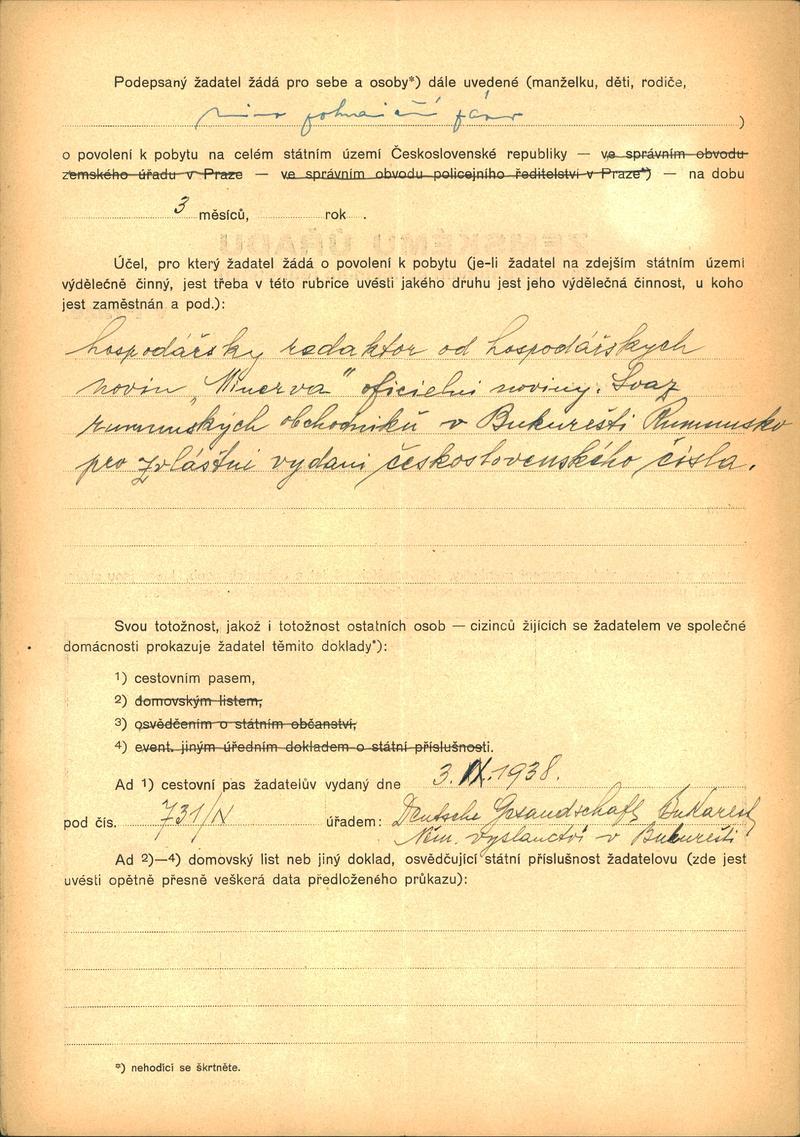 Podepsaný žadatel žádá pro sebe a osoby*) dále uvedené (manželku, děti, rodiče,
mimo pohraniční pásmo )
o povolení k pobytu na celém státním území Československé republiky — ve správním obvodu
zemského úřadu v Praze — ve správním obvodu policejního ředitelství v Praze*) — na dobu
3 měsíců, rok .
Účel, pro který žadatel žádá o povolení k pobytu (je-li žadatel na zdejším státním území
výdělečně činný, jest třeba v této rubrice uvésti jakého druhu jest jeho výdělečná činnost, u koho
jest zaměstnán a pod.):
hospodářsky redaktor od hospodářskych
novin „Minerva" oficielni noviny. Svaz
rumunských obchodniků v Bukurešti Rumunsko
pro zvláštni vydani československého čísla.
Svou totožnost, jakož i totožnost ostatních osob — cizinců žijících se žadatelem ve společné
domácnosti prokazuje žadatel těmito doklady*):
1) cestovním pasem,
2) domovským listem,
3) osvědčením o státním občanství,
4) event. jiným úředním dokladem o státní příslušnosti.
Ad 1) cestovní pas žadatelův vydaný dne 3. IX. 1938.
pod čís. 731/IX úřadem: Deutsche Gesandschaft Bukarest
Něm. vyslanctví v Bukurešti
Ad 2)—4) domovský list neb jiný doklad, osvědčující státní příslušnost žadatelovu (zde jest
uvésti opětně přesně veškerá data předloženého průkazu):
*) nehodící se škrtněte.